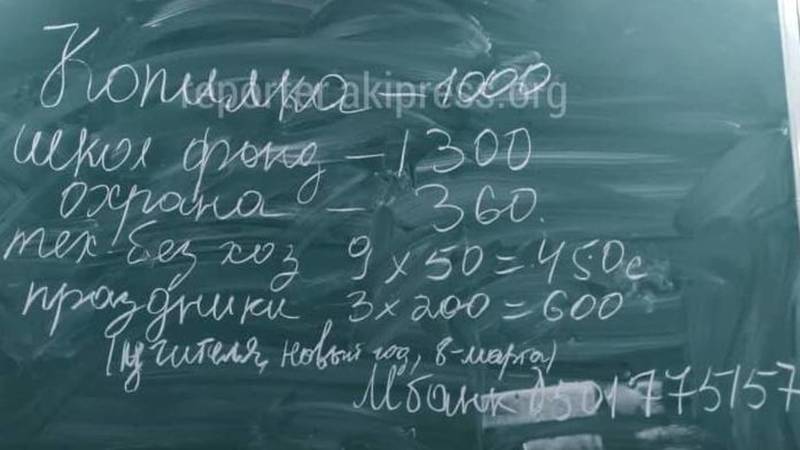 Копилка - 1000
reporter.akipress.org
школ фонд - 1300
охрана - 360.
тех-без хоз 9 x 50 = 450с
праздники 3 x 200 = 600
(учителя, новый год, 8-марта)
Мбанк 0501775157